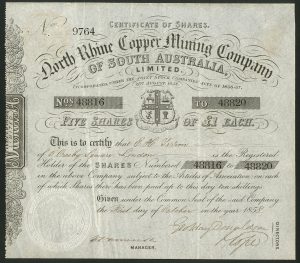 CERTIFICATE OF SHARES.
9764
North Rhine Copper Mining Company
OF SOUTH AUSTRALIA,
LIMITED.
INCORPORATED UNDER THE JOINT STOCK COMPANIES ACT OF 1856-57.
Nos 48816 TO 48820
FIVE SHARES OF £1 EACH.
This is to certify that
of Crosby Square London is the Registered
Holder of the SHARES Numbered 48816 to 48820
in the above Company subject to the Articles of Association, on each
of which Shares there has been paid up to this day ten shillings
Given under the Common Seal of the said Company
the First day of October in the year 1858
MANAGER.
DIRECTORS